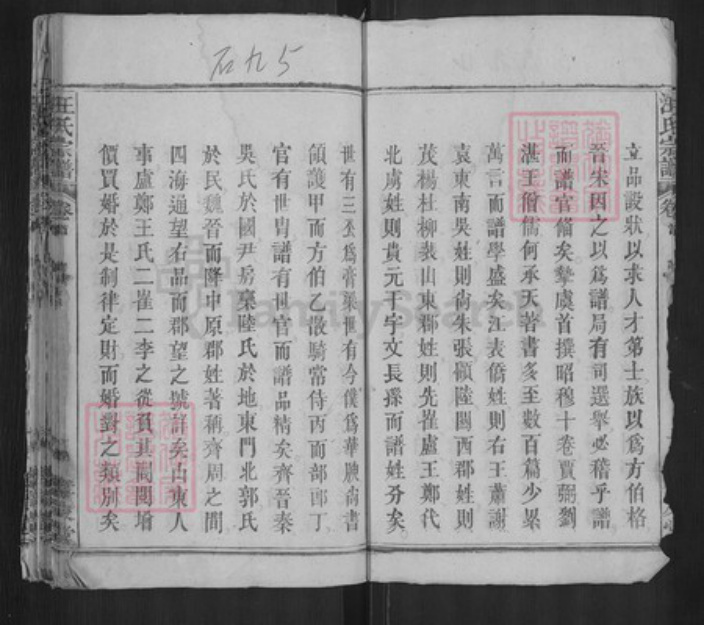 石九5
汪氏宗譜
立品設狀以求人才第士族以爲方伯格
晉宋因之以爲譜局有司選舉必稽乎譜
而譜官備矣摯虞首撰昭穆十卷賈弼劉
湛王儉儒何承天著書多至數百篇少累
萬言而譜學盛矣江表僑姓則右王蕭謝
袁東南吳姓則尚朱張顧陸關西郡姓則
茂楊杜柳裴山東郡姓則先崔盧王鄭代
北虜姓則貴元于宇文長孫而譜姓分矣
世有三公爲膏粱世有令僕爲華腴尚書
領護甲而方伯乙散騎常侍丙而部郎丁
官有世胄譜有世官而譜品精矣齊晉秦
吳氏於國尹房裴陸氏於地東門北郭氏
於民魏晉而降中原郡姓著稱齊周之間
四海通望右品而郡望之號詳矣山東人
事盧鄭王氏二崔二李之從負其閥閱增
價買婚於是制律定財而婚對之類別矣
汪氏宗譜 卷首
FamilySearch